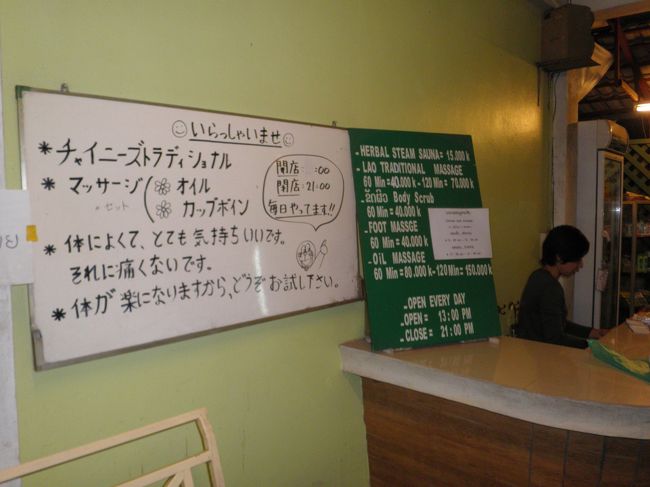 いらっしゃいませ
* チャイニーズトラディショナル
* マッサージ オイル
セット カップボイン
開店 :00
閉店:21:00
毎日やってます!!
* 体によくて、とても気持ちいいです。
それに痛くないです。
* 体が楽になりますから、どうぞお試し下さい。
-HERBAL STEAM SAUNA = 15.000 k
-LAO TRADITIONAL MASSAGE
60 Min = 40.000 k - 120 Min = 70.000 k
Body Scrub
60 Min = 40.000 k
-FOOT MASSGE
60 Min = 40.000 k
-OiL MASSAGE
60 Min = 80.000 k - 120 Min = 150.000 k
-OPEN EVERY DAY
-OPEN = 13:00 PM
-CLOSE = 21:00 PM